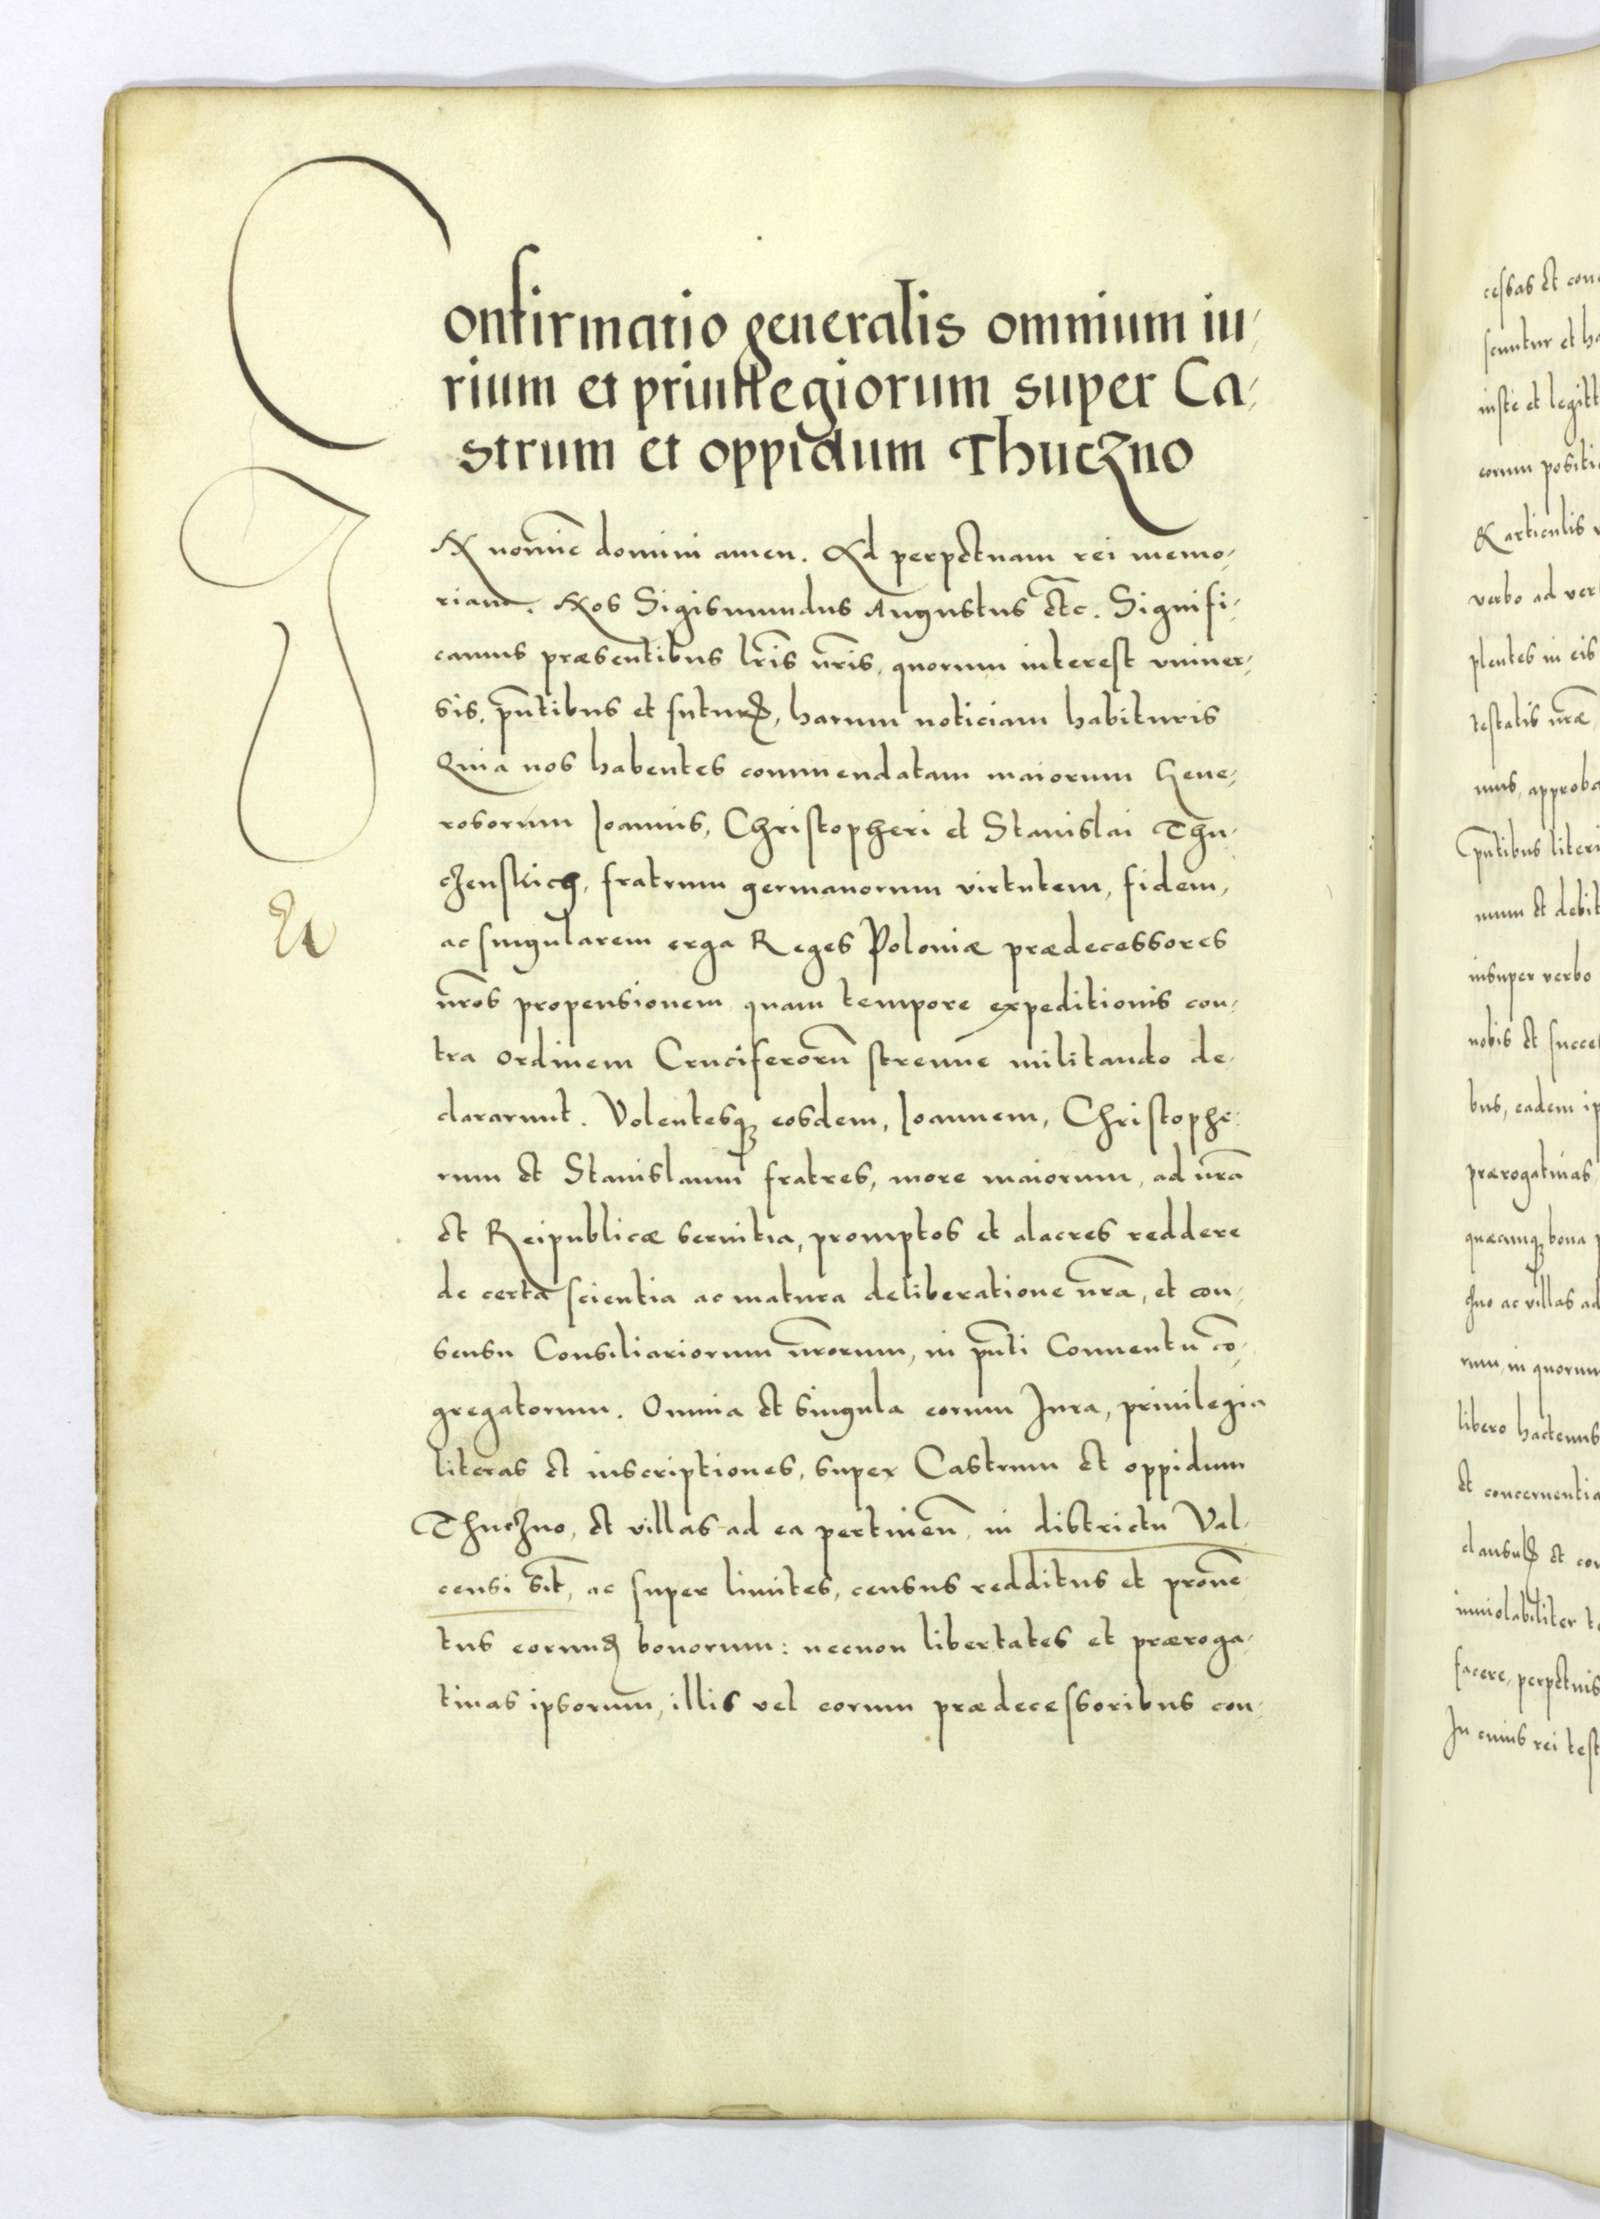 Confirmatio generalis omnium iu-
rium et priuilegiorum super Ca-
strum et oppidum Thuczno
IN nomīe domini amen. Ad perpetuam rei memo-
riam. Nos Sigismundus Augustus etc. Signifi-
camus præsentibus lr̄is nr̄is, quorum interest vniuer-
sis, pn̄tibus et futurꝭ, harum noticiam habituris
Quia nos habentes commendatam maiorum Gene-
rosorum Ioannis, Christopheri et Stanislai Thu-
czenskich, fratrum germanorum virtutem, fidem,
ac singularem erga Reges Poloniæ prædecessores
nr̄os propensionem, quam tempore expeditionis con-
tra ordinem Cruciferorū strenue militando de-
clararunt. Volentesqꝫ eosdem, Ioannem, Christophe-
rum et Stanislaum fratres, more maiorum, ad nr̄a
et Reipublicæ seruitia, promptos et alacres reddere
de certa scientia ac matura deliberatione nr̄a, et con-
sensu Consiliariorum nr̄orum, in pn̄ti Conuentu cō-
gregatorum. Omnia et singula eorum Jura, priuilegia
literas et inscriptiones, super Castrum et oppidum
Thuczno, et villas ad ea pertinen̄, in districtu Val-
censi sit̄, ac super limites, census redditus et prouē-
tus eorundꝫ bonorum: necnon libertates et præroga-
tiuas ipsorum, illis vel eorum prædecessoribus con-
cessas et con
scuntur et ha
iuste et legitt
eorum positi
& articulis
verbo ad ver
plentes in eis
testatis nr̄æ
mus, approba
pn̄tibus literi
mum et debit
insuper verbo
nobis et succe
bus, eadem ip
prærogatiuas
quæcunqꝫ bona p
czno ac villas ad
rum, in quorum
libero hactenus
et concernentia
clausulꝭ et con
inuiolabiliter t
facere, perpetuis
In cuius rei test